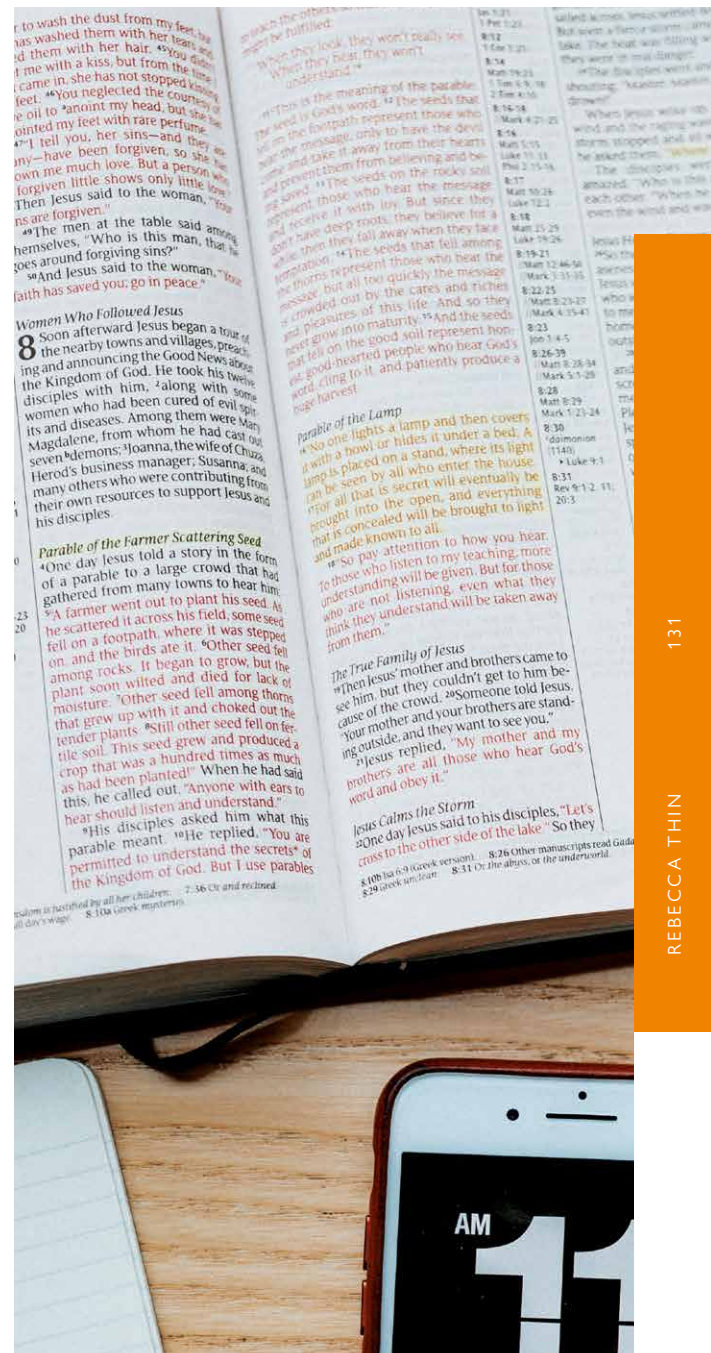 r to wash the dust from my feet, but
has washed them with her tears and
ed them with her hair. 45You didn't
t me with a kiss, but from the time I
came in, she has not stopped kissing
feet. 46You neglected the courtesy of
e oil to *anoint my head, but she has
ointed my feet with rare perfume.
47"I tell you, her sins—and they are
ny—have been forgiven, so she has
own me much love. But a person who
forgiven little shows only little love."
Then Jesus said to the woman, "Your
ns are forgiven."
49The men at the table said among
hemselves, "Who is this man, that he
goes around forgiving sins?"
50And Jesus said to the woman, "Your
faith has saved you; go in peace."
Women Who Followed Jesus
8 Soon afterward Jesus began a tour of
the nearby towns and villages, preach-
ing and announcing the Good News about
the Kingdom of God. He took his twelve
disciples with him, 2along with some
women who had been cured of evil spir-
its and diseases. Among them were Mary
Magdalene, from whom he had cast out
seven bdemons; 3Joanna, the wife of Chuza,
Herod's business manager; Susanna; and
many others who were contributing from
their own resources to support Jesus and
his disciples.
Parable of the Farmer Scattering Seed
4One day Jesus told a story in the form
of a parable to a large crowd that had
gathered from many towns to hear him:
5"A farmer went out to plant his seed. As
he scattered it across his field, some seed
fell on a footpath, where it was stepped
on, and the birds ate it. 6Other seed fell
among rocks. It began to grow, but the
plant soon wilted and died for lack of
moisture. 7Other seed fell among thorns
that grew up with it and choked out the
tender plants. 8Still other seed fell on fer-
tile soil. This seed grew and produced a
crop that was a hundred times as much
as had been planted!" When he had said
this, he called out, "Anyone with ears to
hear should listen and understand."
9His disciples asked him what this
parable meant. 10He replied, "You are
permitted to understand the secrets* of
the Kingdom of God. But I use parables
isdom is justified by all her children. 7:36 Or and reclined.
ll day's wage. 8:10a Greek mysteries.
to teach the others
might be fulfilled:
'When they look, they won't really see.
When they hear, they won't
understand.'*
11"This is the meaning of the parable:
The seed is God's word. 12The seeds that
fell on the footpath represent those who
hear the message, only to have the devil
come and take it away from their hearts
and prevent them from believing and be-
ing saved. 13The seeds on the rocky soil
represent those who hear the message
and receive it with joy. But since they
don't have deep roots, they believe for a
while, then they fall away when they face
temptation. 14The seeds that fell among
the thorns represent those who hear the
message, but all too quickly the message
is crowded out by the cares and riches
and pleasures of this life. And so they
never grow into maturity. 15And the seeds
that fell on the good soil represent hon-
est, good-hearted people who hear God's
word, cling to it, and patiently produce a
huge harvest.
Parable of the Lamp
16"No one lights a lamp and then covers
it with a bowl or hides it under a bed. A
lamp is placed on a stand, where its light
can be seen by all who enter the house.
17For all that is secret will eventually be
brought into the open, and everything
that is concealed will be brought to light
and made known to all.
18"So pay attention to how you hear.
To those who listen to my teaching, more
understanding will be given. But for those
who are not listening, even what they
think they understand will be taken away
from them."
The True Family of Jesus
19Then Jesus' mother and brothers came to
see him, but they couldn't get to him be-
cause of the crowd. 20Someone told Jesus,
"Your mother and your brothers are stand-
ing outside, and they want to see you."
21Jesus replied, "My mother and my
brothers are all those who hear God's
word and obey it."
Jesus Calms the Storm
22One day Jesus said to his disciples, "Let's
cross to the other side of the lake." So they
8:10b Isa 6:9 (Greek version). 8:26 Other manuscripts read Gada
8:29 Greek unclean. 8:31 Or the abyss, or the underworld.
1 Pet 1:23
8:12
8:14
Matt 19:23
1 Tim 6:9, 10
2 Tim 4:10
8:16-18
//Mark 4:21-25
8:16
Matt 5:15
Luke 11:33
Phil 2:15-16
8:17
Matt 10:26
Luke 12:2
8:18
Matt 25:29
Luke 19:26
8:19-21
//Matt 12:46-50
//Mark 3:31-35
8:22-25
//Matt 8:23-27
//Mark 4:35-41
8:23
Jon 1:4-5
8:26-39
//Matt 8:28-34
//Mark 5:1-20
8:28
Matt 8:29
Mark 1:23-24
8:30
daimonion
(1140)
Luke 9:1
8:31
Rev 9:1-2, 11;
20:3
shouting, "Master, Master
When Jesus woke up
wind and the raging wav
storm stopped and all w
he asked them, "Where
The disciples were
amazed. "Who is this
each other. "When he
even the wind and wav
-23
20
131
REBECCA THIN
AM
11